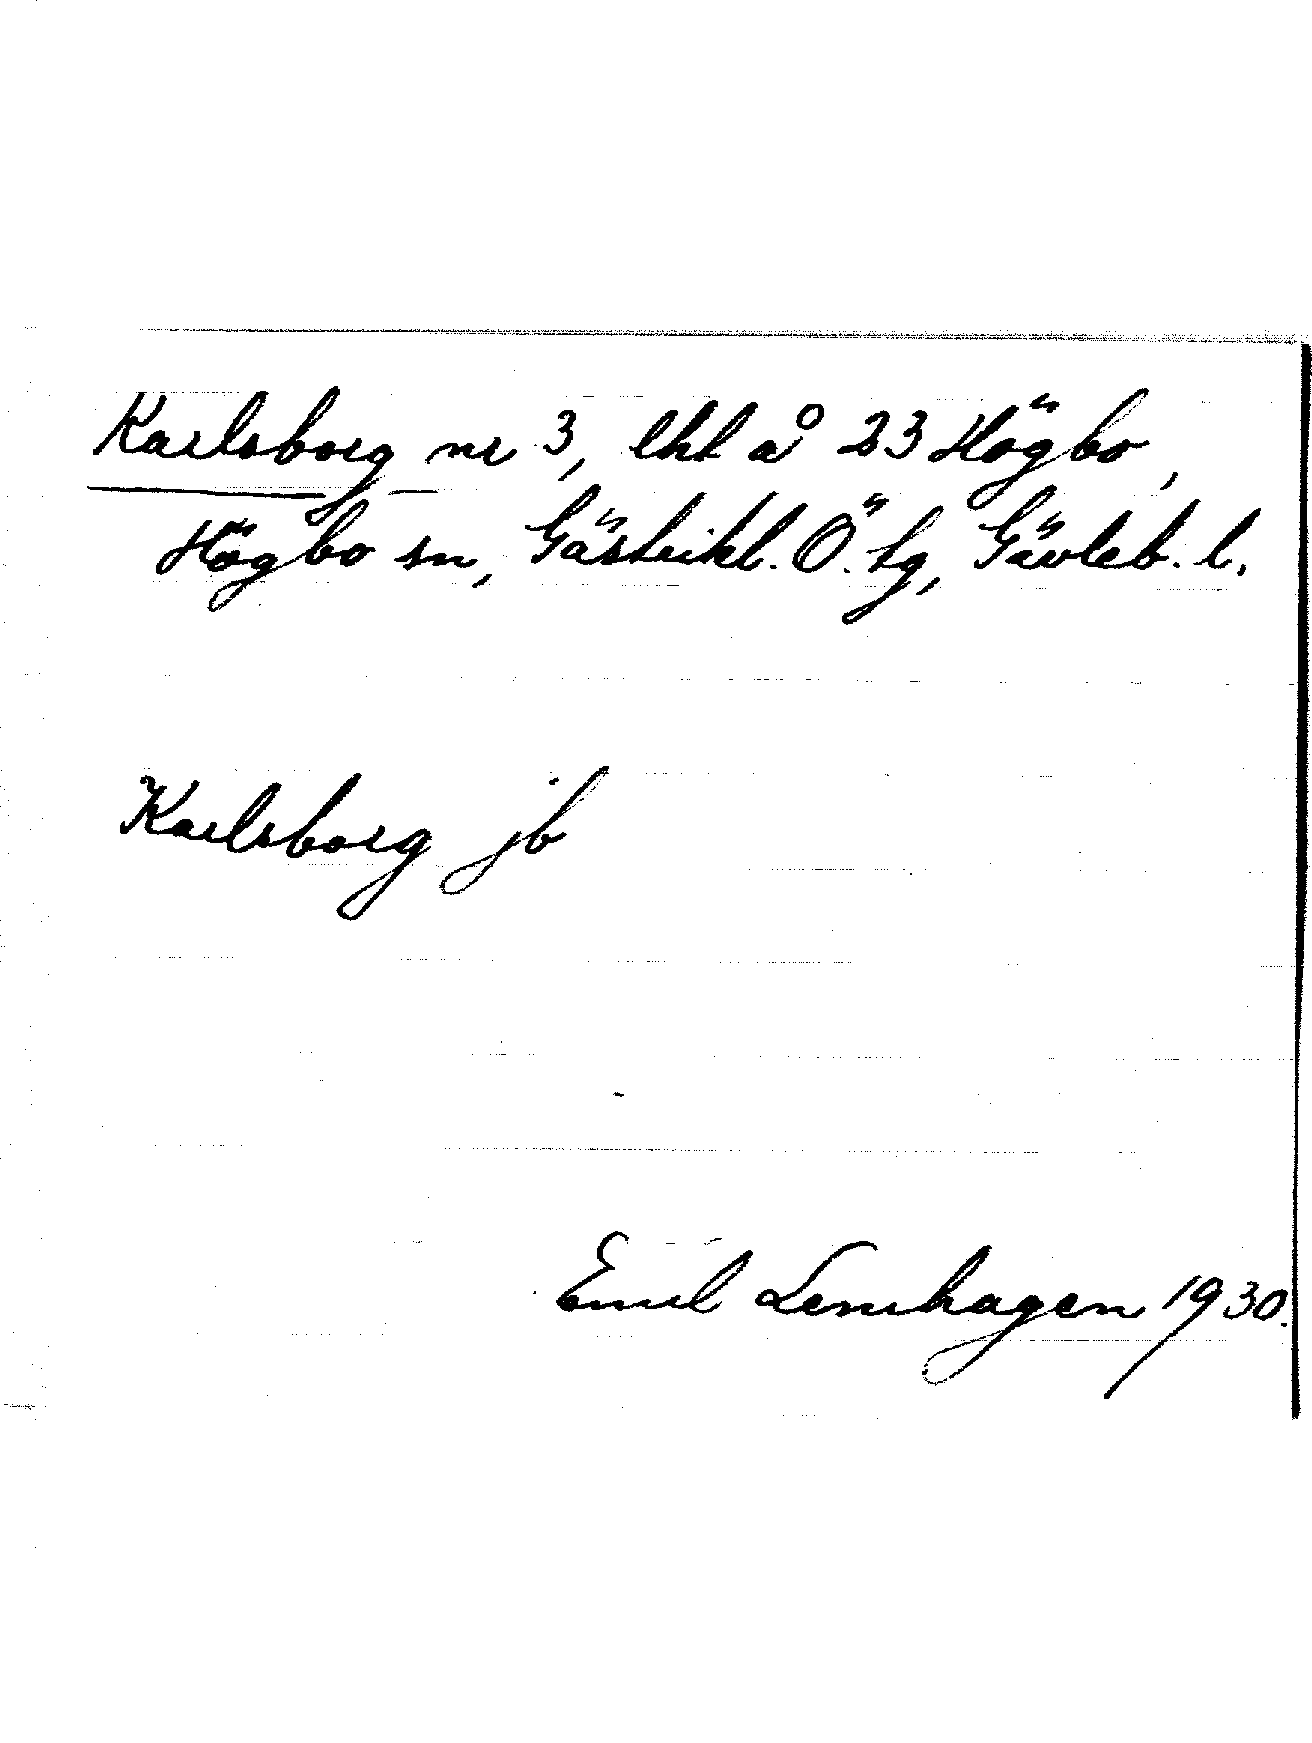 Karlsborg nr 3, lht å 23 Högbo,
Högbo sn, Gästrikl. Ö. tg, Gävleb. l.
Karlsborg jb
Emil Lernhagen 1930.